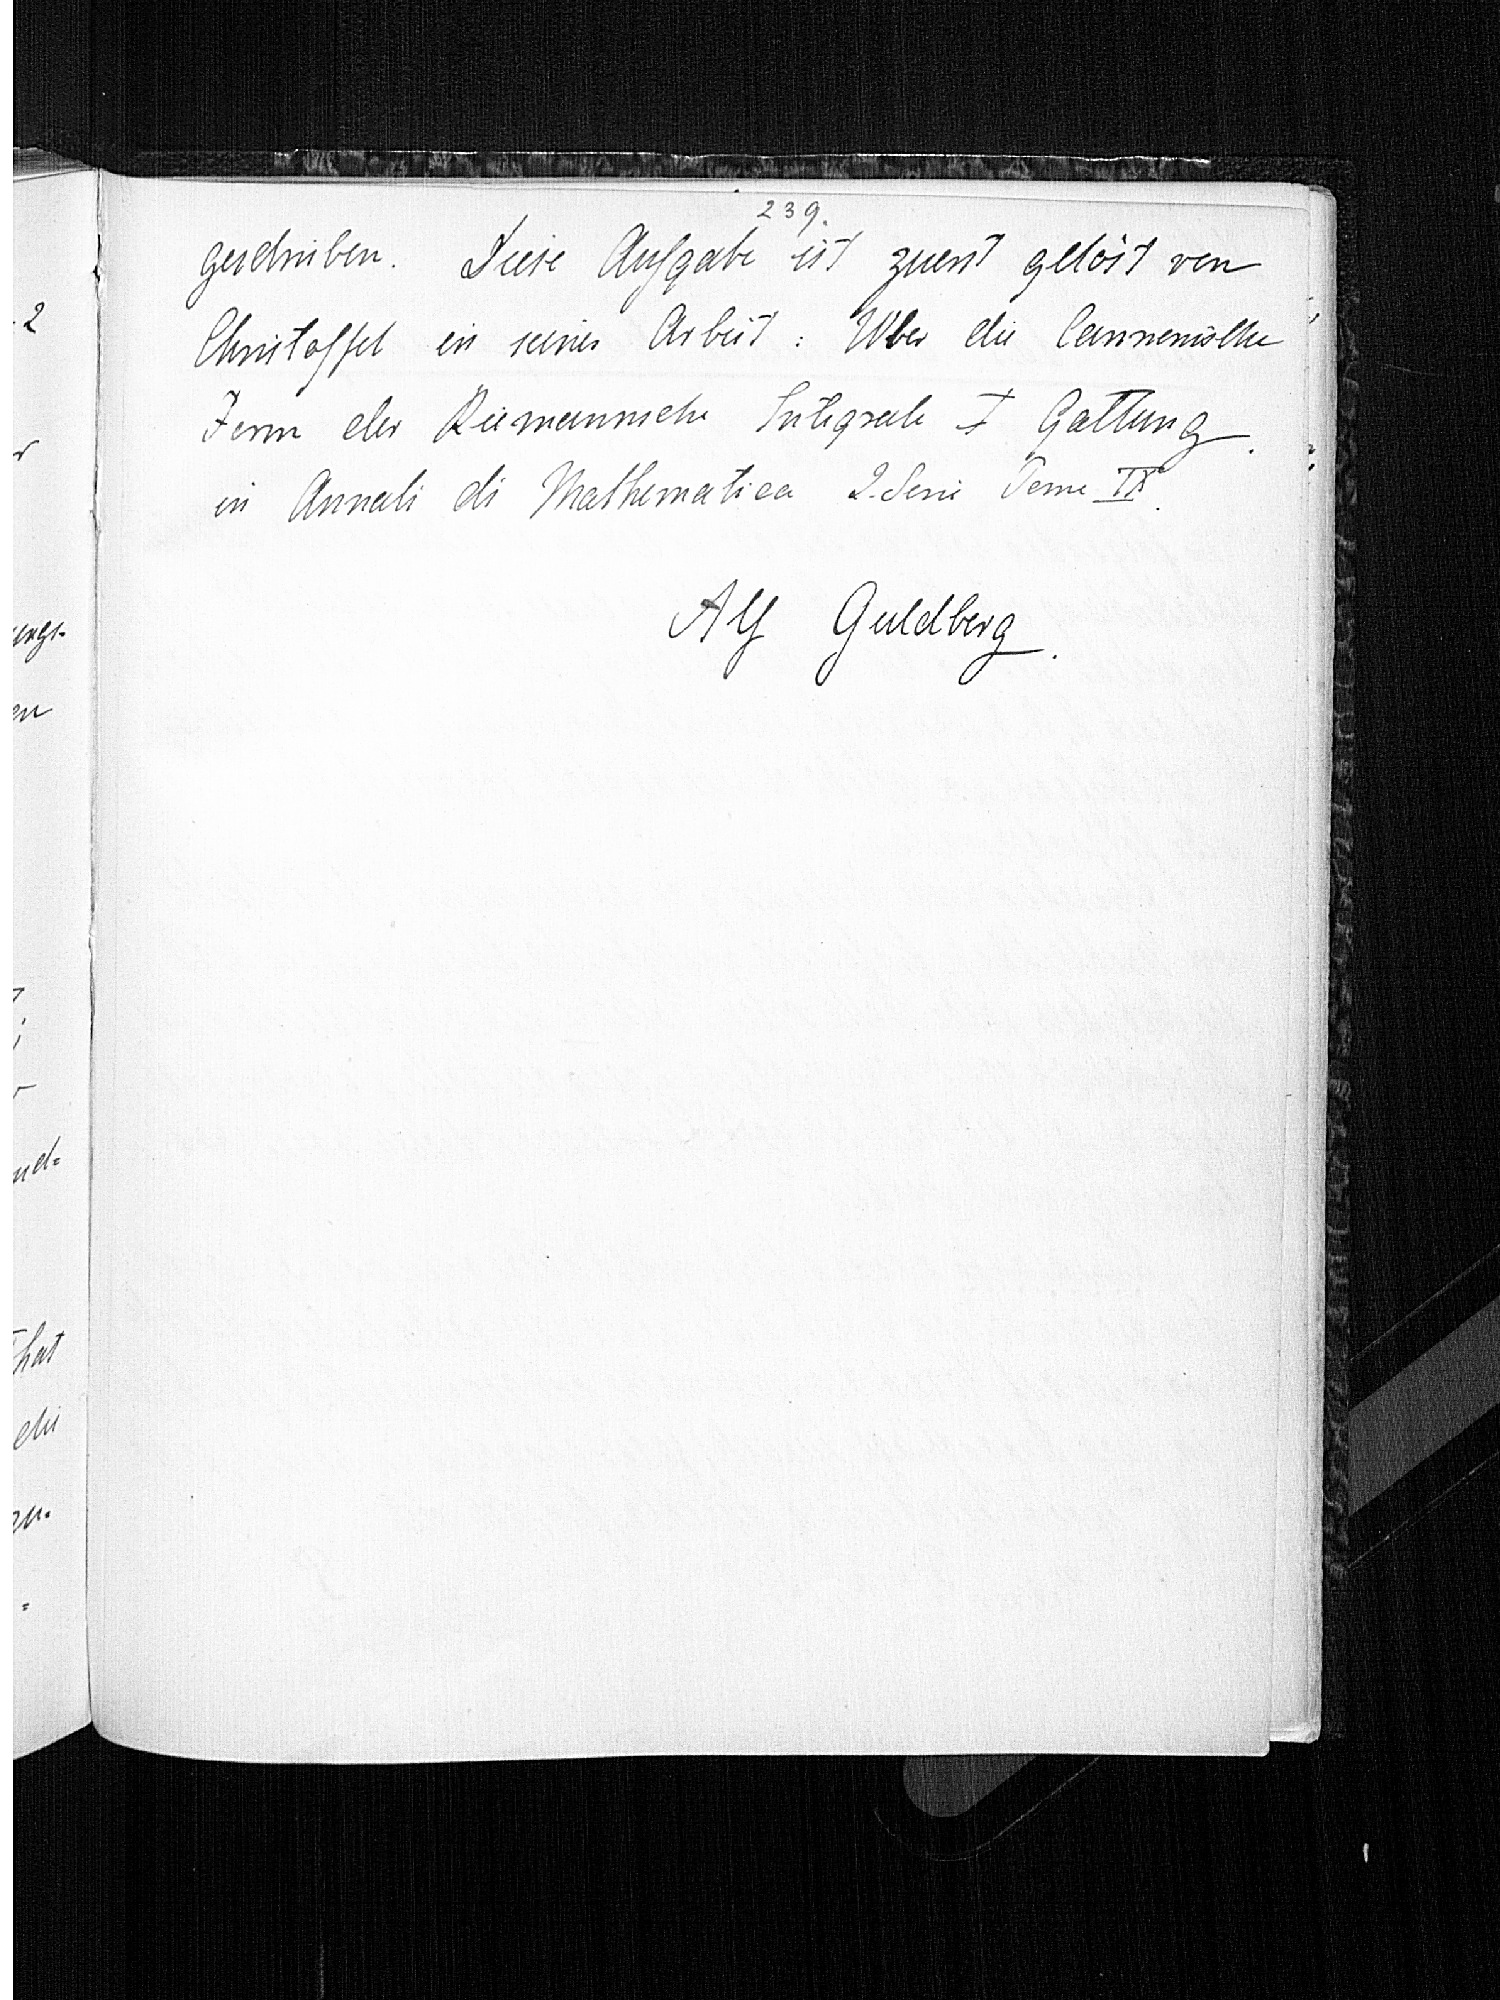 239.
geschrieben. Diese Aufgabe ist zuerst gelöst von
Christoffel in seiner Arbeit: Über die Cannonische
Form der Riemannsche Integrale I Gattung.
in Annali di Mathematica 2. Serie Tome IX.
Alf Guldberg.
2
r
en
That
die